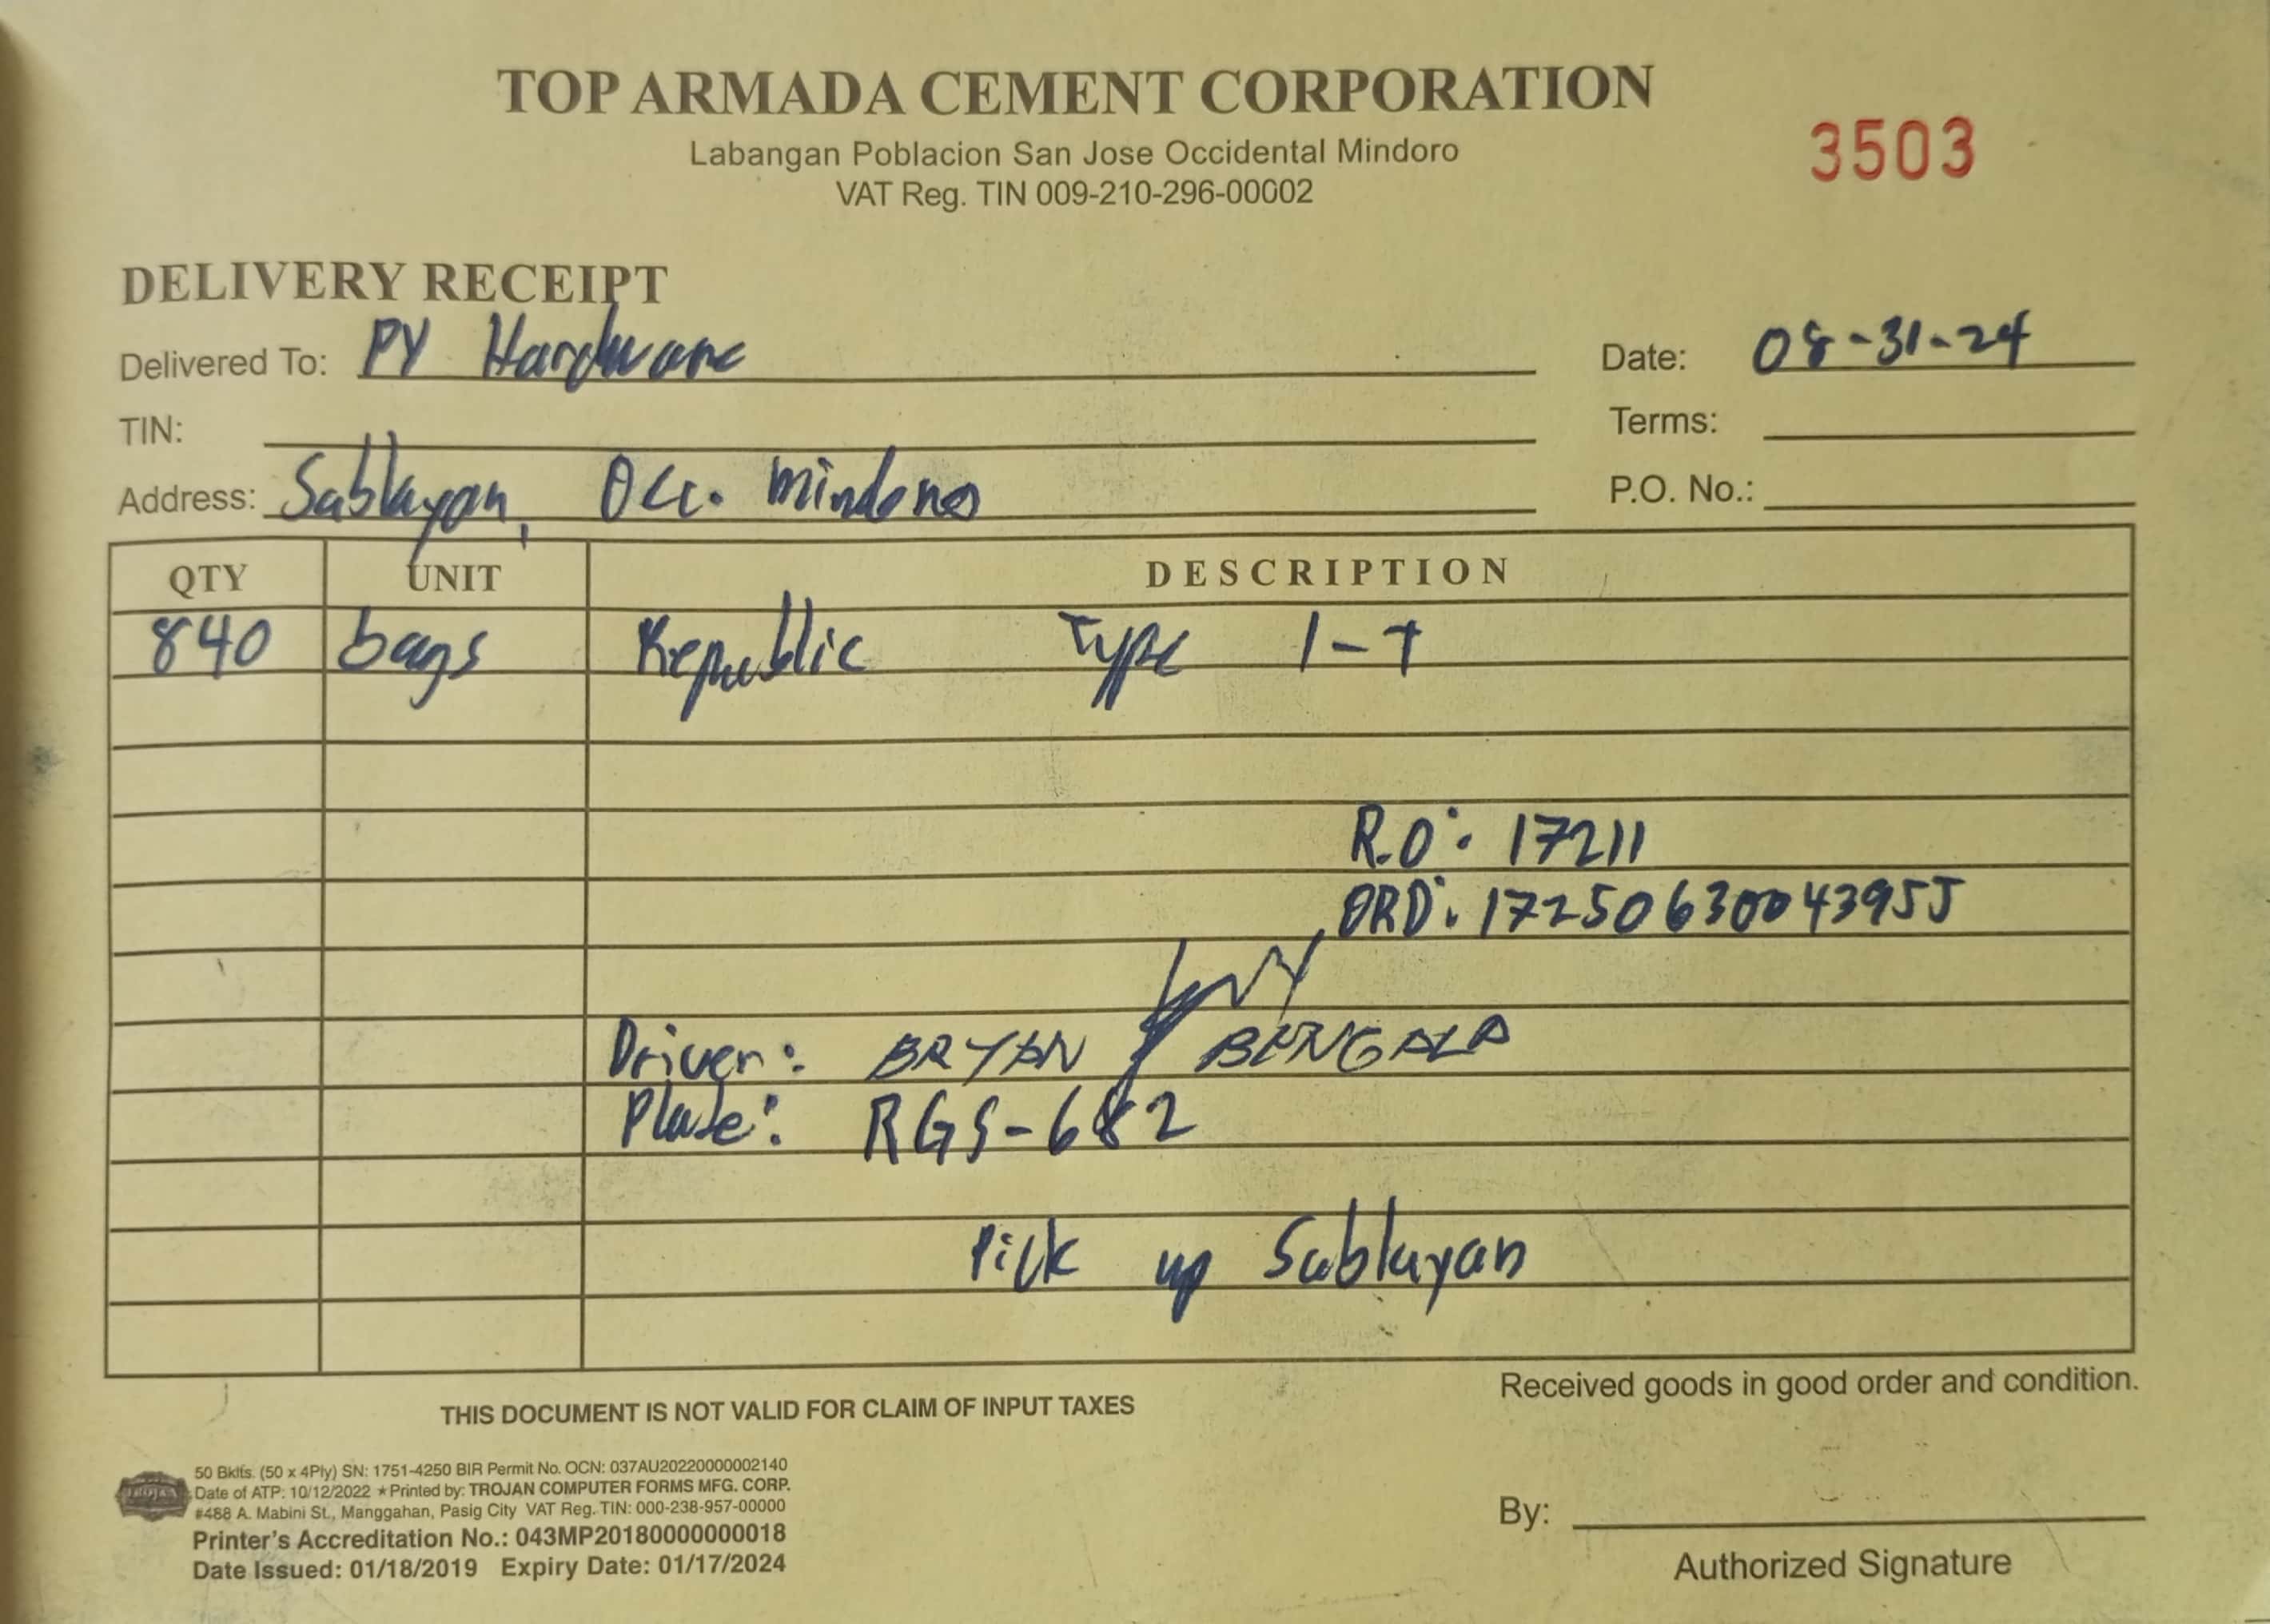 TOP ARMADA CEMENT CORPORATION
3503
Labangan Poblacion San Jose Occidental Mindoro
VAT Reg. TIN 009-210-296-00002
DELIVERY RECEIPT
Delivered To: PY Hardware
Date: 08-31-24
TIN:
Terms:
Address: Sablayan, Occ. Mindoro
P.O. No.:
QTY UNIT DESCRIPTION
840 bags Republic Type 1-T
R.O: 17211
ORD: 1725063004395J
Driver: BRYAN BENGALA
Plate: RGS-682
Pick up Sablayan
Received goods in good order and condition.
THIS DOCUMENT IS NOT VALID FOR CLAIM OF INPUT TAXES
TROJAN
50 Bklts. (50 x 4Ply) SN: 1751-4250 BIR Permit No. OCN: 037AU20220000002140
Date of ATP: 10/12/2022 ★ Printed by: TROJAN COMPUTER FORMS MFG. CORP.
#488 A. Mabini St., Manggahan, Pasig City VAT Reg. TIN: 000-238-957-00000
Printer's Accreditation No.: 043MP20180000000018
Date Issued: 01/18/2019 Expiry Date: 01/17/2024
By:
Authorized Signature